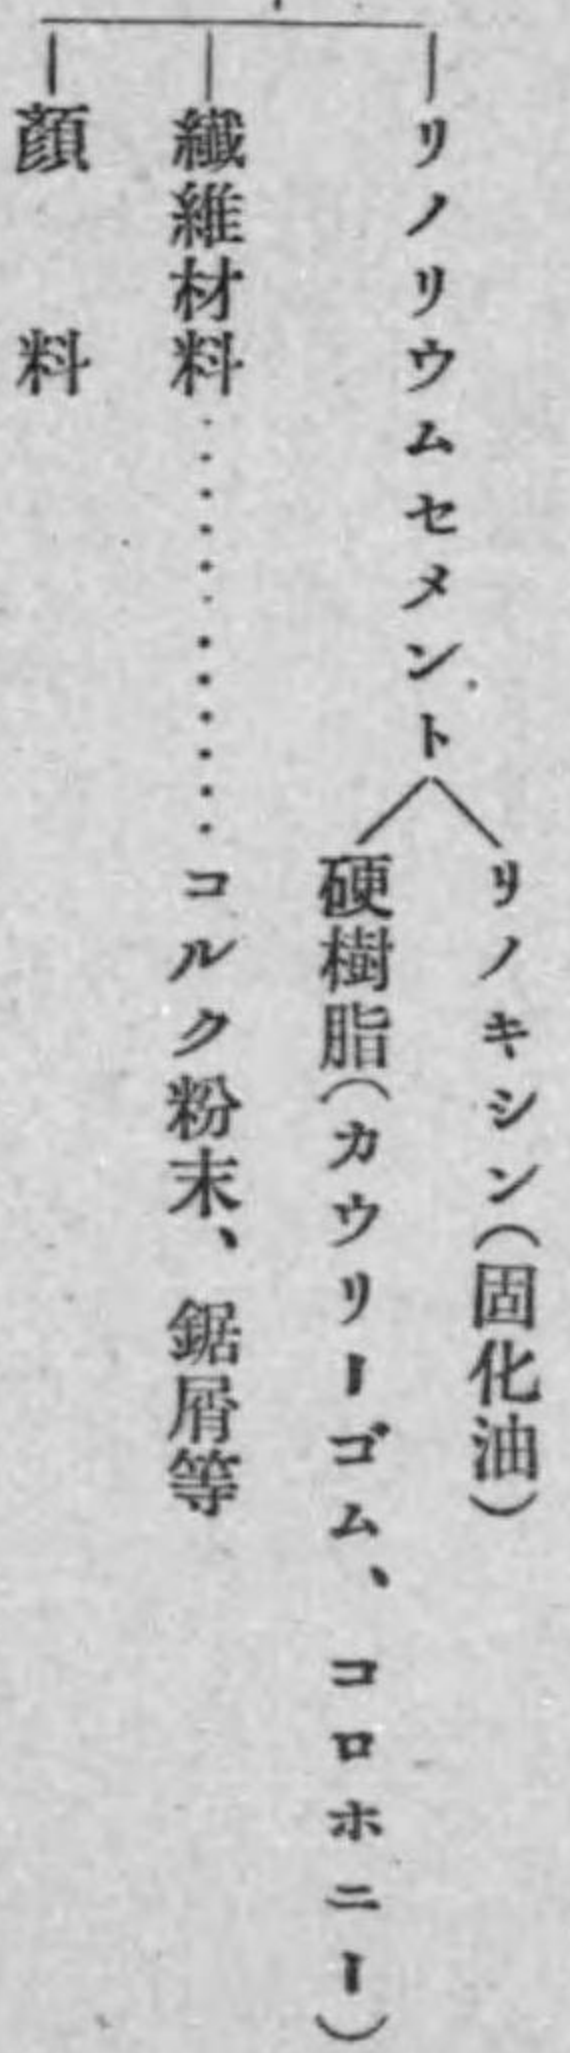 リノリウムセメント
リノキシン(固化油)
硬樹脂(カウリーゴム、コロホニー)
繊維材料…………コルク粉末、鋸屑等
顔料